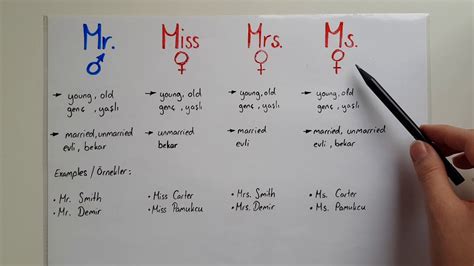 Mr. Miss Mrs. Ms.
→ young, old → young, old → young, old → young, old
genç, yaşlı genç, yaşlı genç, yaşlı genç, yaşlı
→ married, unmarried → unmarried → married → married, unmarried
evli, bekar bekar evli evli, bekar
Examples / Örnekler:
• Mr. Smith • Miss Carter • Mrs. Smith • Ms. Carter
• Mr. Demir • Miss Pamukcu • Mrs. Demir • Ms. Pamukcu